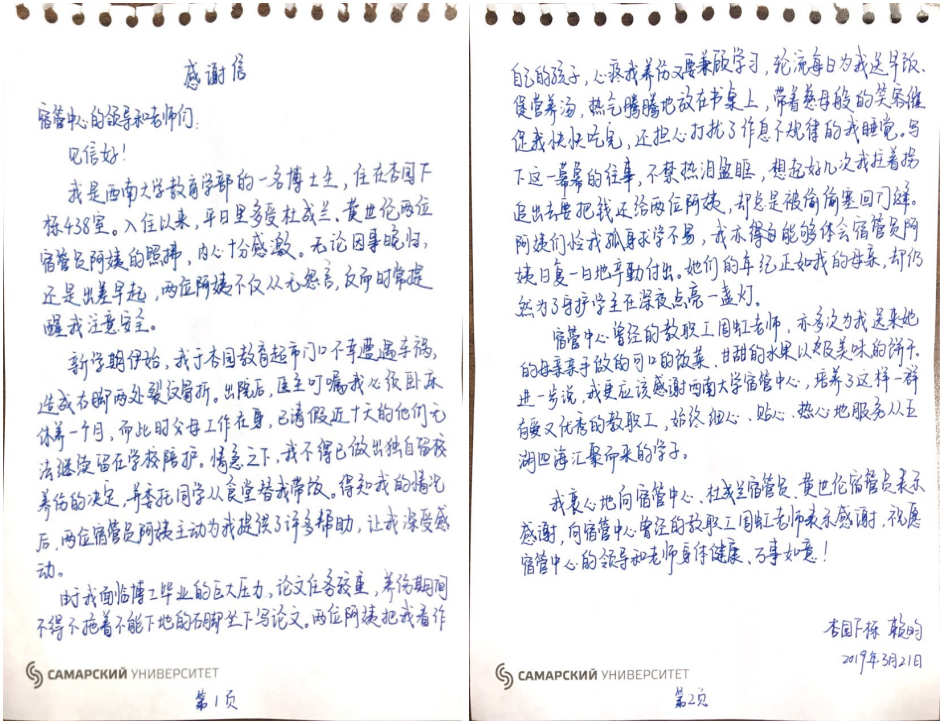 感谢信
宿管中心的领导和老师们:
见信好!
我是西南大学教育学部的一名博士生,住在杏园下
栋438室。入住以来,平日里多受杜成兰、黄世伦两位
宿管员阿姨的照拂,内心十分感激。无论因事晚归,
还是出差早起,两位阿姨不仅从无怨言,反而时常提
醒我注意安全。
新学期伊始,我于杏园教育超市门口不幸遭遇车祸,
造成右脚两处裂纹骨折。出院后,医生叮嘱我必须卧床
休养一个月,而此时父母工作在身,已请假近十天的他们无
法继续留在学校陪护。情急之下,我不得已做出独自留校
养伤的决定,并委托同学从食堂替我带饭。得知我的情况
后,两位宿管员阿姨主动为我提供了许多帮助,让我深受感
动。
由于我面临博士毕业的巨大压力,论文任务较重,养伤期间
不得不拖着不能下地的右脚坐下写论文。两位阿姨把我看作
САМАРСКИЙ УНИВЕРСИТЕТ
第1页
自己的孩子,心疼我养伤又要兼顾学习,轮流每日为我送早饭、
煲营养汤,热气腾腾地放在书桌上,带着慈母般的笑容催
促我快快吃完,还担心打扰了作息不规律的我睡觉。写
下这一幕幕的往事,不禁热泪盈眶,想起好几次我拄着拐
追出去要把钱还给两位阿姨,却总是被偷偷塞回门缝。
阿姨们怜我孤身求学不易,我亦得自能够体会宿管员阿
姨日复一日地辛勤付出。她们的年纪正如我的母亲,却仍
然为了守护学生在深夜点亮一盏灯。
宿管中心曾经的教职工周虹老师,亦多次为我送来她
的母亲亲手做的可口的饭菜、甘甜的水果以及美味的饼干。
进一步说,我更应该感谢西南大学宿管中心,培养了这样一群
有爱又优秀的教职工,始终细心、贴心、热心地服务从五
湖四海汇聚而来的学子。
我衷心地向宿管中心、杜成兰宿管员、黄世伦宿管员表示
感谢,向宿管中心曾经的教职工周虹老师表示感谢,祝愿
宿管中心的领导和老师身体健康、万事如意!
杏园下栋 赖昀
2019年3月21日
САМАРСКИЙ УНИВЕРСИТЕТ
第2页